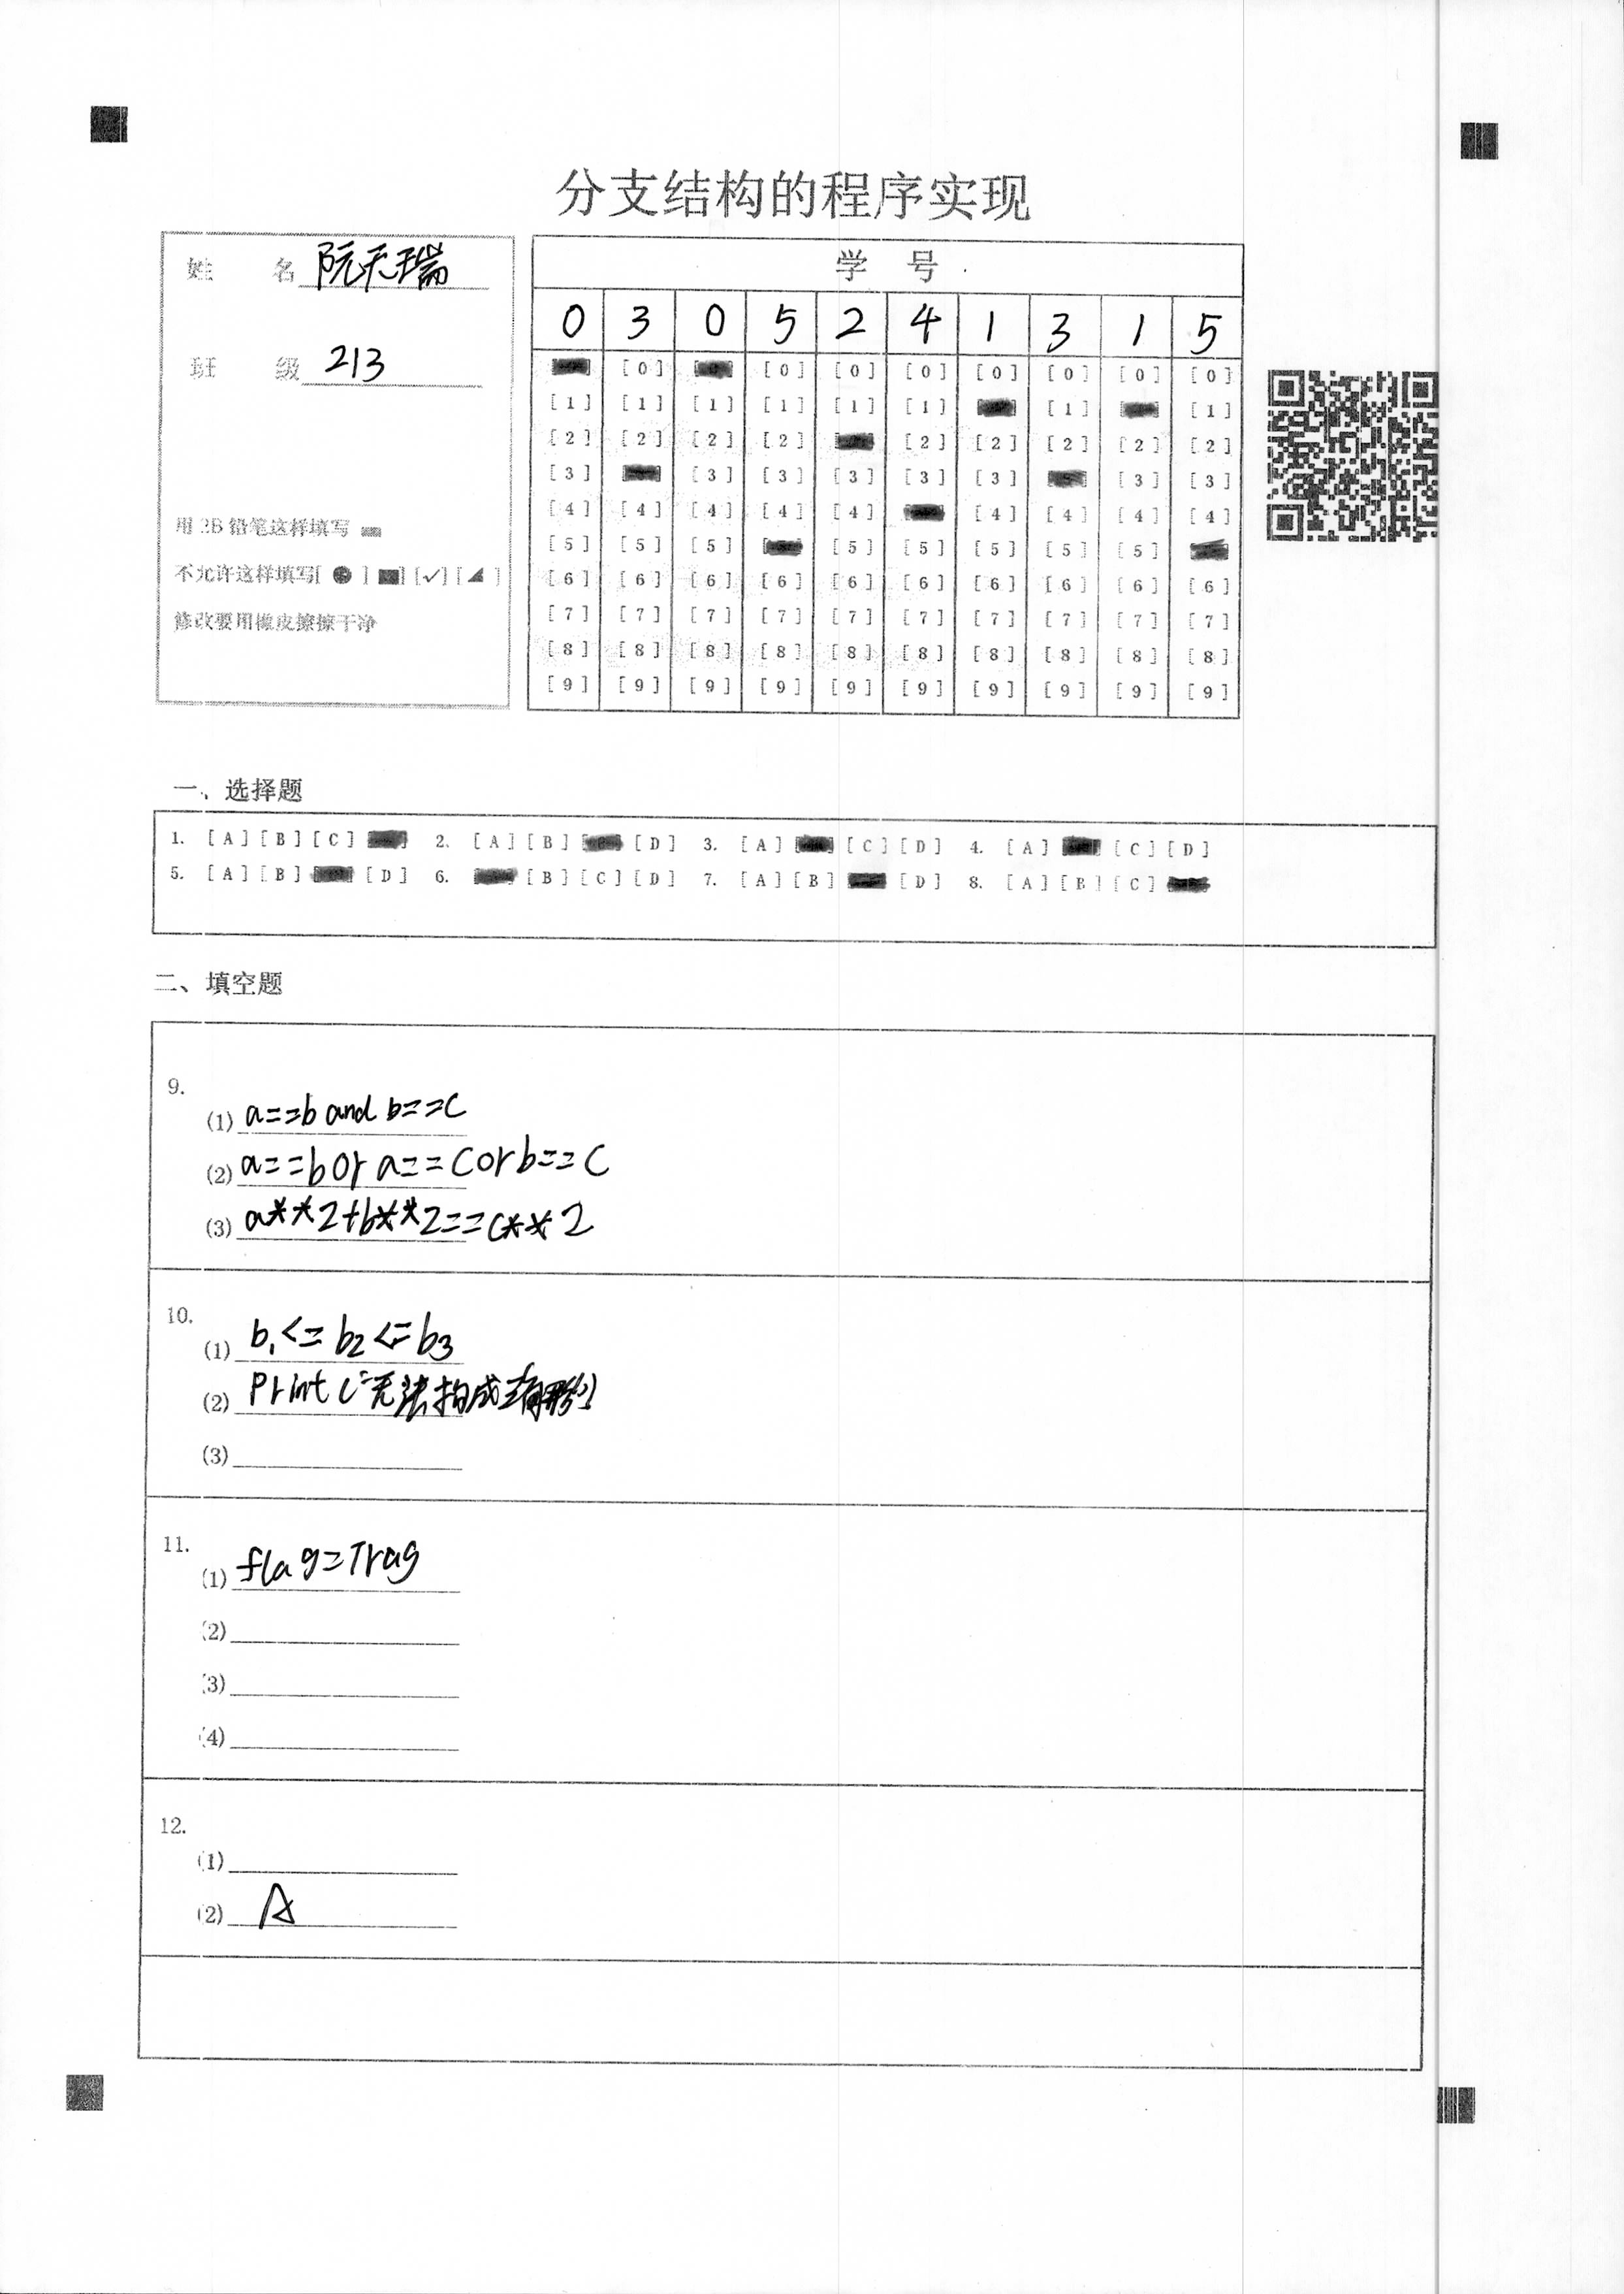 分支结构的程序实现
姓 名 阮天瑞
班 级 213
用2B铅笔这样填写
不允许这样填写[ ] [✓] [ ]
修改要用橡皮擦擦干净
学 号
0 3 0 5 2 4 1 3 1 5
[0] [0] [0] [0] [0] [0] [0] [0]
[1] [1] [1] [1] [1] [1] [1] [1]
[2] [2] [2] [2] [2] [2] [2] [2] [2]
[3] [3] [3] [3] [3] [3] [3] [3]
[4] [4] [4] [4] [4] [4] [4] [4] [4]
[5] [5] [5] [5] [5] [5] [5] [5]
[6] [6] [6] [6] [6] [6] [6] [6] [6] [6]
[7] [7] [7] [7] [7] [7] [7] [7] [7] [7]
[8] [8] [8] [8] [8] [8] [8] [8] [8] [8]
[9] [9] [9] [9] [9] [9] [9] [9] [9] [9]
一、选择题
1. [A] [B] [C] 2. [A] [B] [D] 3. [A] [C] [D] 4. [A] [C] [D]
5. [A] [B] [D] 6. [B] [C] [D] 7. [A] [B] [D] 8. [A] [B] [C]
二、填空题
9.
(1) a==b and b==c
(2) a==b or a==c or b==c
(3) a**2+b**2==c**2
10.
(1) b1<=b2<=b3
(2) Print("无法构成三角形")
(3)
11.
(1) flag=Trag
(2)
(3)
(4)
12.
(1)
(2) A